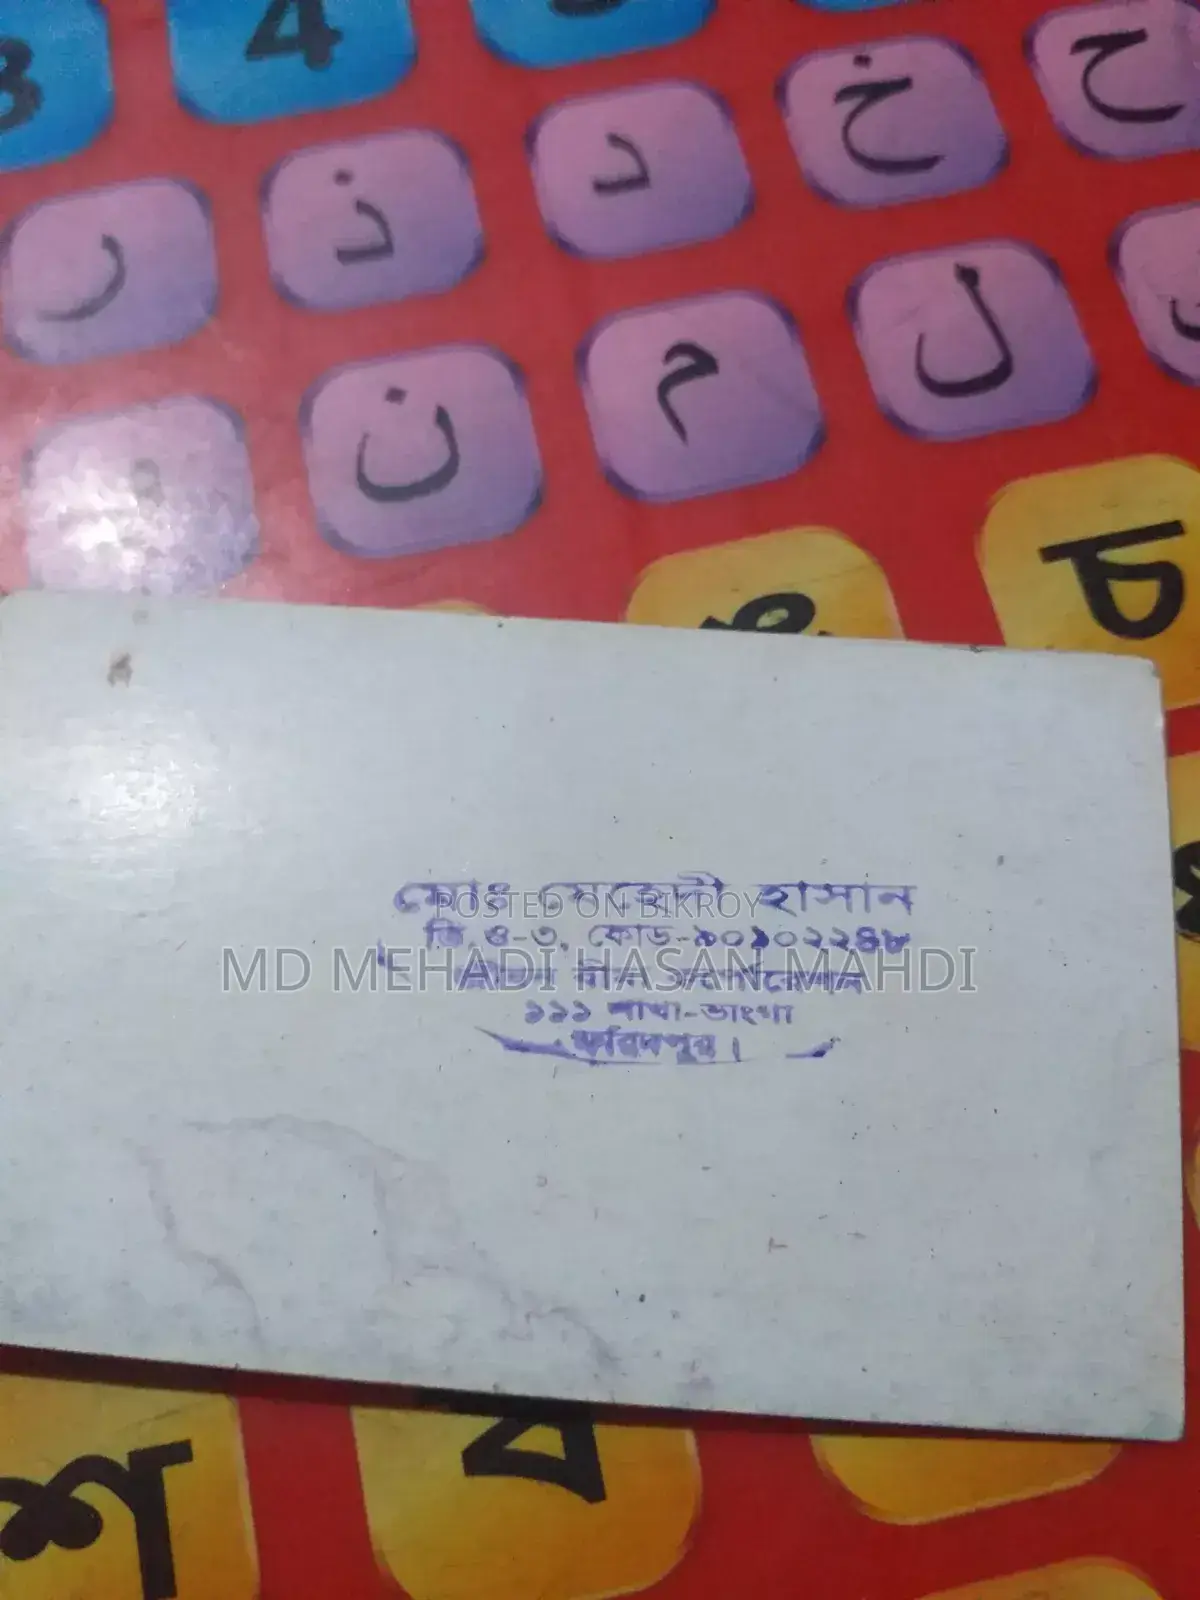 3 4
ح خ د ذ ر
ل م ن
চ
মোঃ মেহেদী হাসান
POSTED ON BIKROY
ডি,ও-৩, কোড-৯০১০২২৪৮
MD MEHADI HASAN MAHDI
১১১ শাখা-ভাংগা
ফরিদপুর।
শ